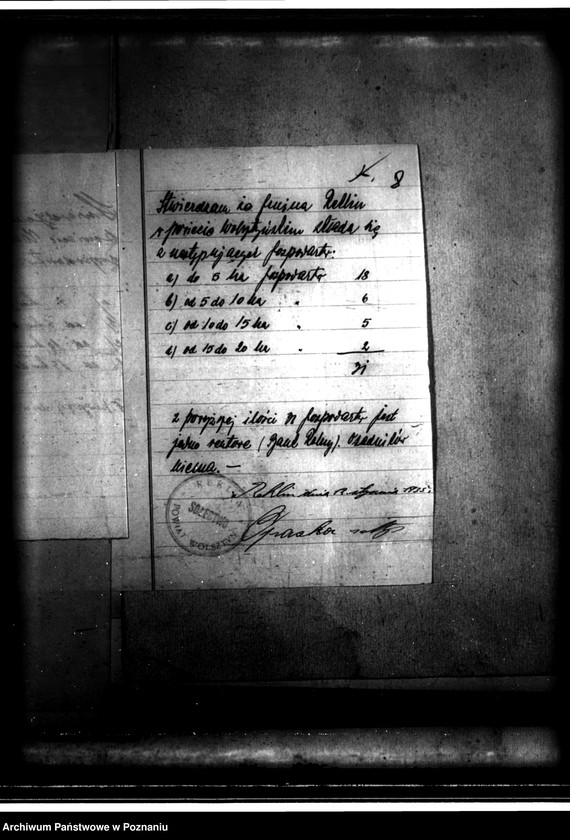 8
Stwierdzam że gmina Reklin
w powiecie Wolsztyńskim składa się
z następujących gospodarstw:
a) do 5 ha gospodarstw 18
b) od 5 do 10 ha " 6
c) od 10 do 15 ha " 5
d) od 15 do 20 ha " 2
31
z powyższej ilości 31 gospodarstw jest
jedno rentowe (Bank Rolny). Osadników
niema. —
Reklin dnia stycznia 1935
REKLIN
SOŁECTWO
POWIAT WOLSZTYN
Archiwum Państwowe w Poznaniu